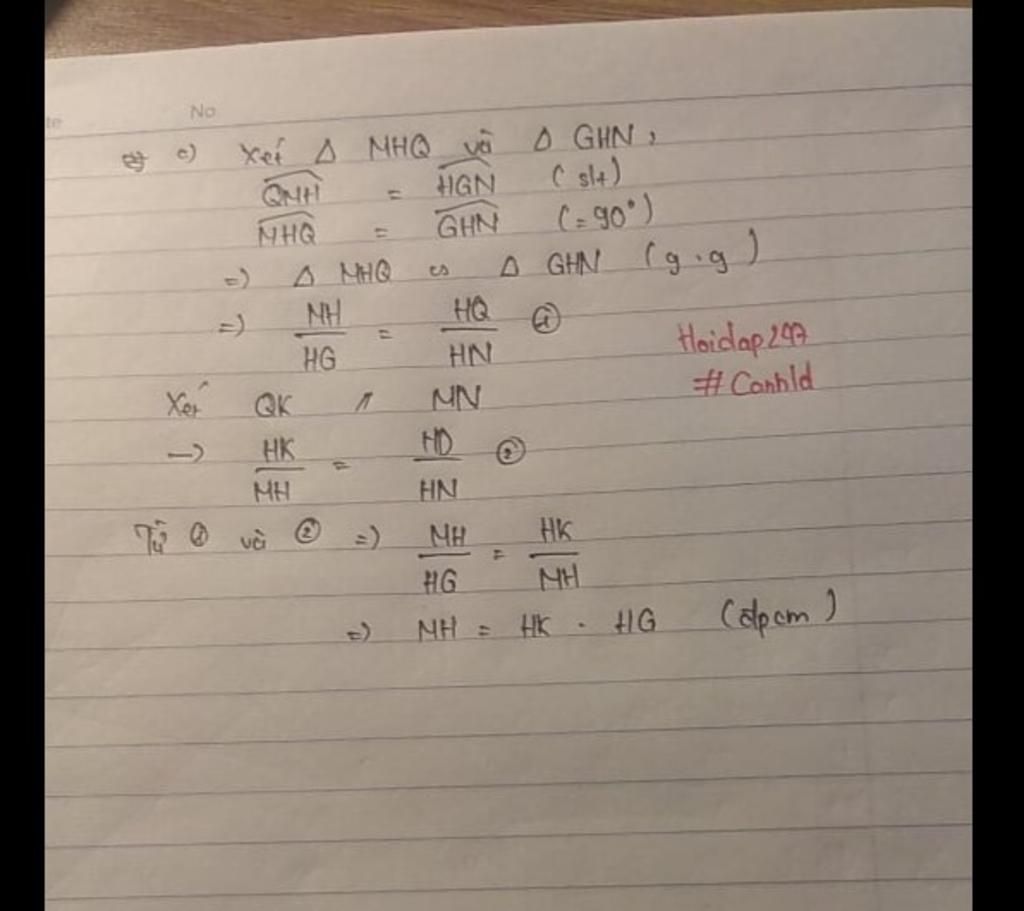 No
c) Xét Δ MHQ và Δ GHN,
QMH = HGN (slt)
MHQ = GHN (=90°)
=) Δ MHQ ∽ Δ GHN (g.g)
=) MH/HG = HQ/HN ①
Hoidap247
#Conhld
Xét QK // MN
-> HK/MH = HQ/HN ②
Từ ① và ② =) MH/HG = HK/MH
=) MH = HK . HG (đpcm)